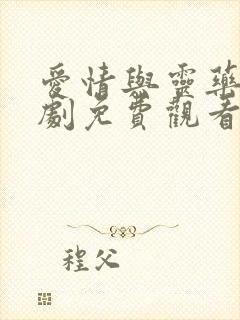 愛情與靈藥
劇免費觀看
程父